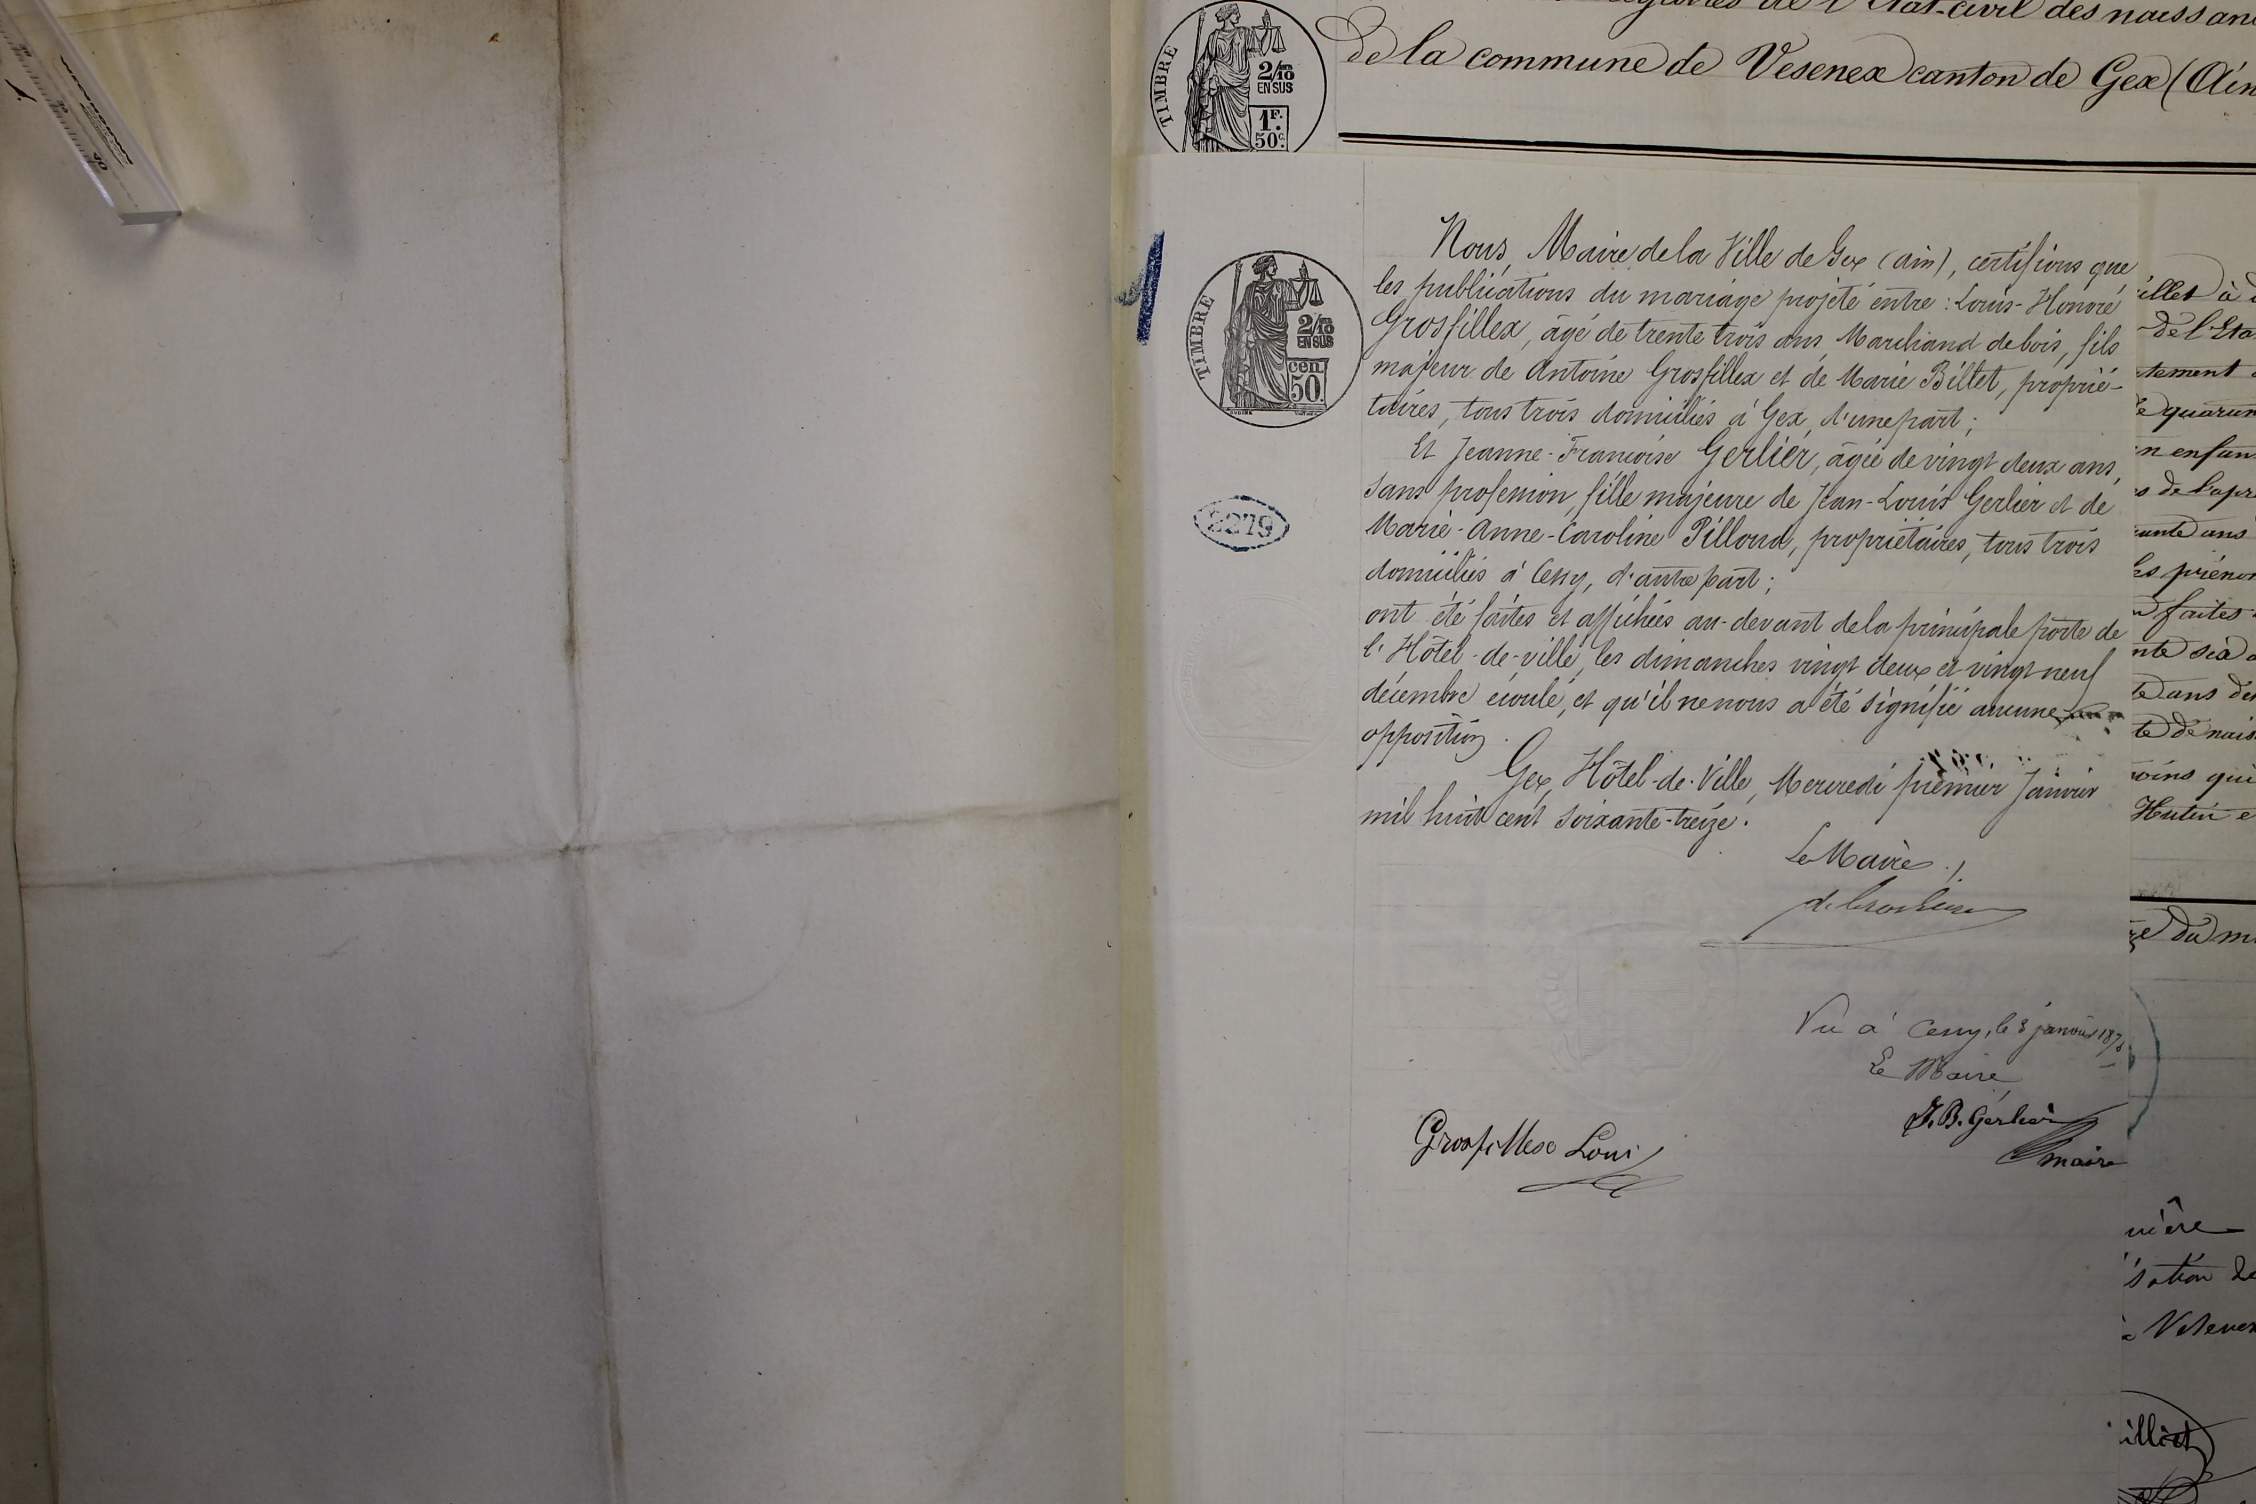 de la commune de Vesenex canton de Gex (Ain
TIMBRE
2/10
EN SUS
1F.
50c.
Nous, Maire de la Ville de Gex (ain), certifions que
les publications du mariage projeté entre : Louis-Honoré
Grosfillex, âgé de trente trois ans Marchand de bois, fils
majeur de Antoine Grosfillex et de Marie Billet, proprié-
taires, tous trois domiciliés à Gex, d'une part ;
Et Jeanne-Françoise Gerlier, âgée de vingt deux ans,
sans profession, fille majeure de Jean-Louis Gerlier et de
Marie-Anne-Caroline Pilloud, propriétaires, tous trois
domiciliés à Cessy, d'autre part ;
ont été faites et affichées au-devant de la principale porte de
l'Hôtel-de-ville, les dimanches vingt deux et vingt neuf
décembre écoulé, et qu'il ne nous a été signifié aucune
opposition.
Gex, Hôtel-de-Ville, Mercredi premier Janvier
mil huit cent soixante-treize.
Le Maire
TIMBRE
2/10
EN SUS
cen.
50.
2279
Vu à Cessy, le 8 janvier 1873
Le Maire
J. B. Gerlier
maire
Grosfillex Loui
illet à
de l'Eta
tement
quaran
n enfan
s de l'apr
ante ans
les prénom
faites
nte six
te ans
te de nais
oins qui
Hutin e
du m
sation de
Vesenex
illiet